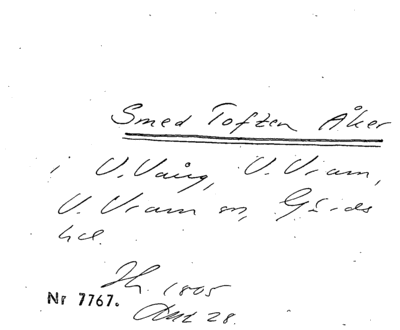 Smed Toften Åker
i V. Vång, V. Vram,
V. Vram sn, Gärds
hd.
Jh. 1805
Nr 7767.
Dec 28.